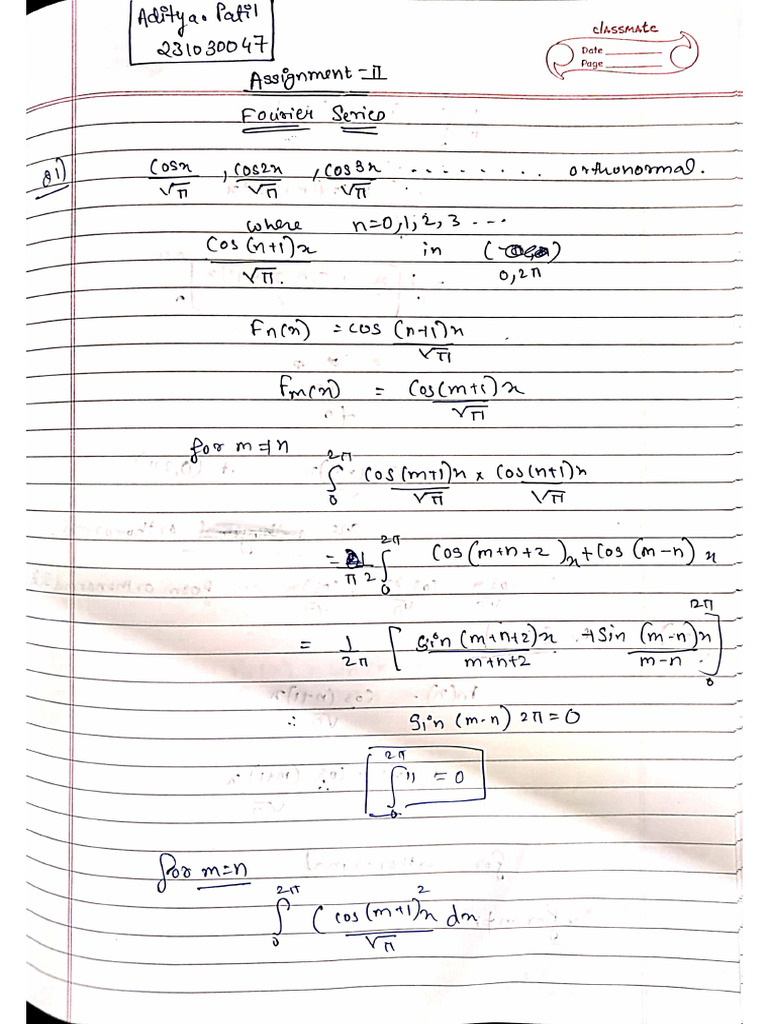 Aditya. Patil
231030047
classmate
Date
Page
Assignment = II
Fourier Series
Q1) Cosx/√π , Cos2x/√π , Cos3x/√π ......... orthonormal.
where n=0,1,2,3 ...
Cos(n+1)x/√π. in
0,2π
Fn(x) = cos (n+1)x/√π
Fm(x) = Cos(m+1)x/√π
for m≠n
∫₀^2π Cos(m+1)x/√π × Cos(n+1)x/√π
= 1/π2 ∫₀^2π Cos(m+n+2)x + Cos(m-n)x
= 1/2π [ Sin(m+n+2)x/m+n+2 + Sin(m-n)x/m-n ]₀^2π
∴ Sin(m-n)2π = 0
∴ ∫₀^2π " = 0
for m=n
∫₀^2π (cos(m+1)x/√π)² dx